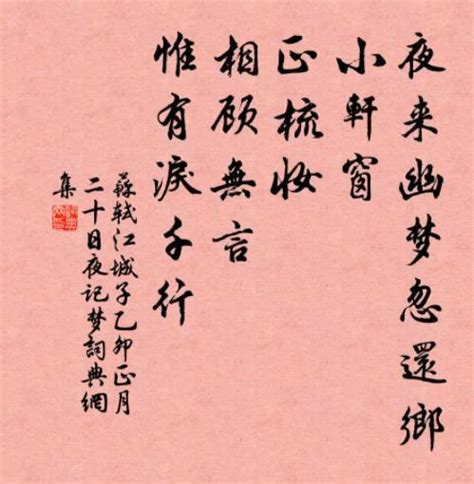 夜来幽梦忽還鄉
小軒窗
正梳妆
相顾無言
惟有淚千行
蘇轼江城子乙卯正月
二十日夜记梦詞典網
集